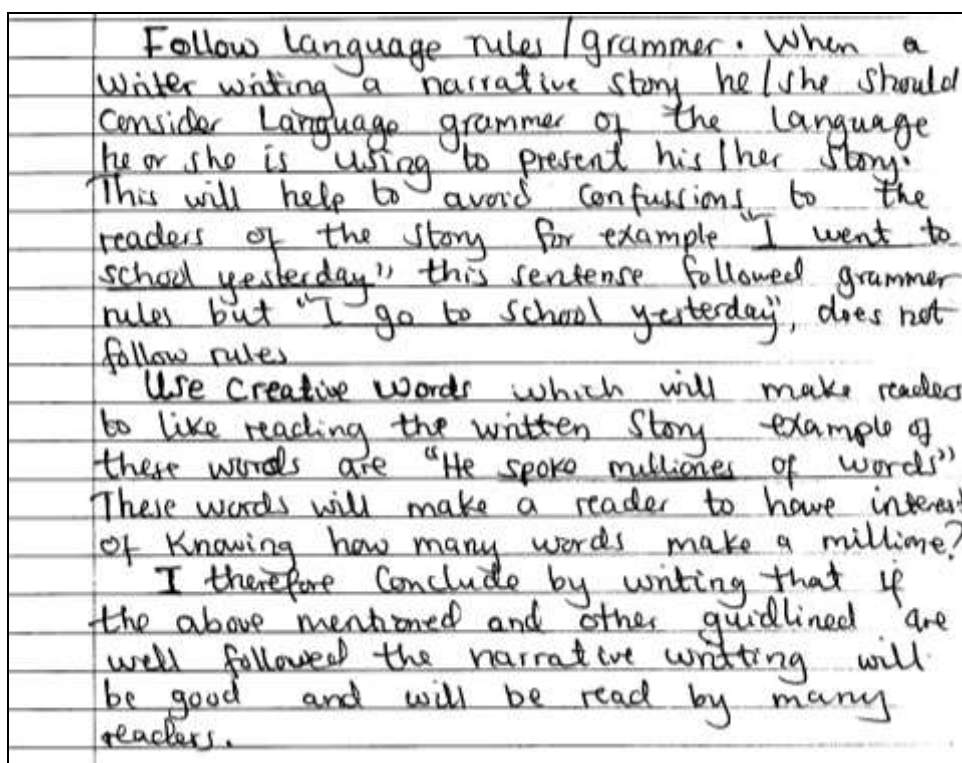 Follow language rules/grammer. When a
writer writing a narrative story he/she should
consider Language grammer of the language
he or she is using to present his/her story.
This will help to avoid confussions to the
readers of the story for example "I went to
school yesterday" this sentence followed grammer
rules but "I go to school yesterday", does not
follow rules
Use creative words which will make readers
to like reading the written story example of
these words are "He spoke milliones of words"
These words will make a reader to have interest
of knowing how many words make a millione?
I therefore conclude by writing that if
the above mentioned and other guidlined are
well followed the narrative writting will
be good and will be read by many
readers.